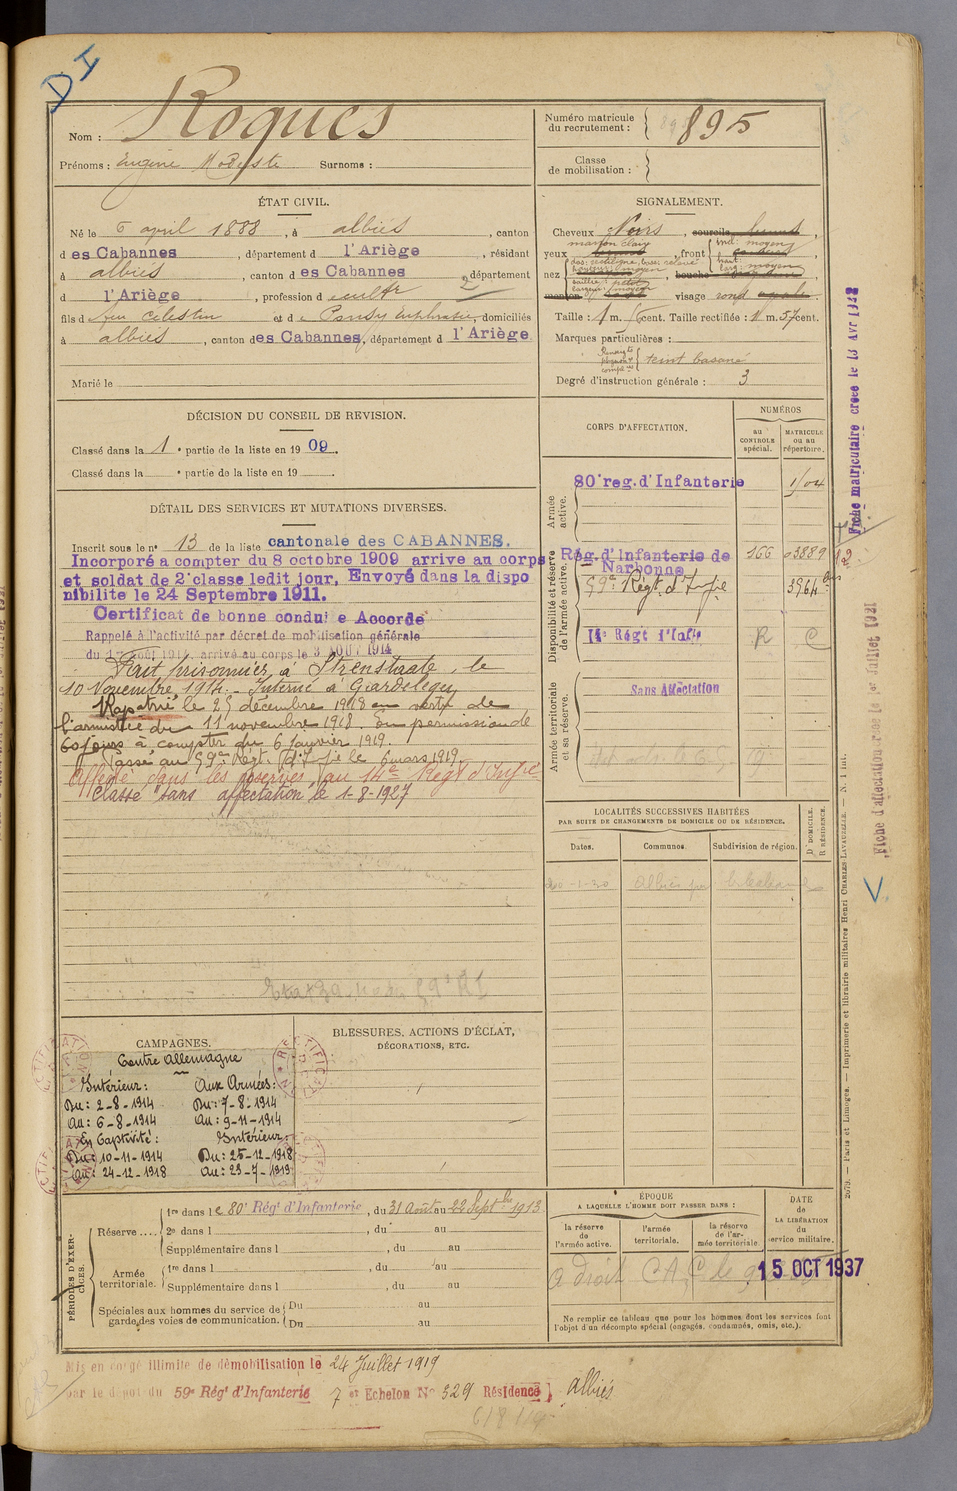 DI
Nom : Roques
Prénoms : Eugène Modeste Surnoms :
Numéro matricule du recrutement : 895
Classe de mobilisation :
ÉTAT CIVIL.
Né le 6 april 1888, à albiès, canton
d es Cabannes, département d l'Ariège, résidant
à albiès, canton d es Cabannes, département
d l'Ariège, profession d cultr 2
fils d feu Célestin et d e, domiciliés
à albiès, canton des Cabannes, département d l'Ariège
Marié le
SIGNALEMENT.
Cheveux Noirs, sourcils
marron clair
yeux, front incl: moyen
haut:
larg: moyen
nez dos: rectiligne, base: relevé
hauteur: moyen
saillie: petit
largeur: moyen
bouche
menton visage rond ovale.
Taille : 1 m. cent. Taille rectifiée : 1 m. 57 cent.
Marques particulières :
teint basané
Degré d'instruction générale : 3
DÉCISION DU CONSEIL DE REVISION.
Classé dans la 1 e partie de la liste en 1909.
Classé dans la e partie de la liste en 19
DÉTAIL DES SERVICES ET MUTATIONS DIVERSES.
Inscrit sous le n° 13 de la liste cantonale des CABANNES.
Incorporé a compter du 8 octobre 1909 arrive au corps
et soldat de 2e classe ledit jour, Envoyé dans la dispo
nibilite le 24 Septembre 1911.
Certificat de bonne conduite Accordé
Rappelé à l'activité par décret de mobilisation générale
du 1er août 1914, arrivé au corps le 3 AOUT 1914
Fait prisonnier à Strenstraate, le
10 Novembre 1914. Interné à Gardelegen
Rapatrié le 25 décembre 1918 en vertu de
l'armistice du 11 novembre 1918 En permission de
60 jours à compter du 6 Janvier 1919.
Passé au 59e Régt. d'Infie le 6 mars 1919.
Affecté dans les réserves au 14e Régt d'Infie
Classé "sans affectation" le 1-8-1927
CORPS D'AFFECTATION.
NUMÉROS
au CONTROLE spécial.
MATRICULE ou au répertoire.
Armée active.
80e reg. d'Infanterie 1104
Disponibilité et réserve de l'armée active.
Rég. d'Infanterie de Narbonne 166 03889
59e Régt. d'Infie 3964 bis
14e Régt d'Infie R C
Armée territoriale et sa réserve.
Sans Affectation
LOCALITÉS SUCCESSIVES HABITÉES
PAR SUITE DE CHANGEMENTS DE DOMICILE OU DE RÉSIDENCE.
Dates. Communes. Subdivision de région. D DOMICILE. R RÉSIDENCE.
CAMPAGNES.
Contre Allemagne
Intérieur:
Du: 2-8-1914
Au: 6-8-1914
Aux Armées:
Du: 7-8-1914
Au: 9-11-1914
En Captivité:
Du: 10-11-1914
Au: 24-12-1918
Intérieur:
Du: 25-12-1918
Au: 23-7-1919
BLESSURES, ACTIONS D'ÉCLAT,
DÉCORATIONS, ETC.
PÉRIODES D'EXERCICES.
Réserve ....
1re dans l e 80e Régt d'Infanterie, du 31 Août au 22 Septbre 1913.
2e dans l, du au
Supplémentaire dans l, du au
Armée territoriale.
1re dans l, du au
Supplémentaire dans l, du au
Spéciales aux hommes du service de garde des voies de communication.
Du au
Du au
ÉPOQUE
A LAQUELLE L'HOMME DOIT PASSER DANS :
la réserve de l'armée active.
l'armée territoriale.
la réserve de l'armée territoriale.
DATE DE LA LIBÉRATION du service militaire.
a droit CAC le
15 OCT 1937
Ne remplir ce tableau que pour les hommes dont les services font
l'objet d'un décompte spécial (engagés, condamnés, omis, etc.).
Mis en congé illimité de démobilisation le 24 Juillet 1919
par le dépôt du 59e Régt d'Infanterie 7e Echelon N° 329 Résidence] Albiès
Fiche matriculaire créée le 13 Avr 1928
Fiche d'affectation créée le 1er Juillet 1921
2079. — Paris et Limoges. — Imprimerie et librairie militaires Henri CHARLES-LAVAUZELLE. — N. 1 int.